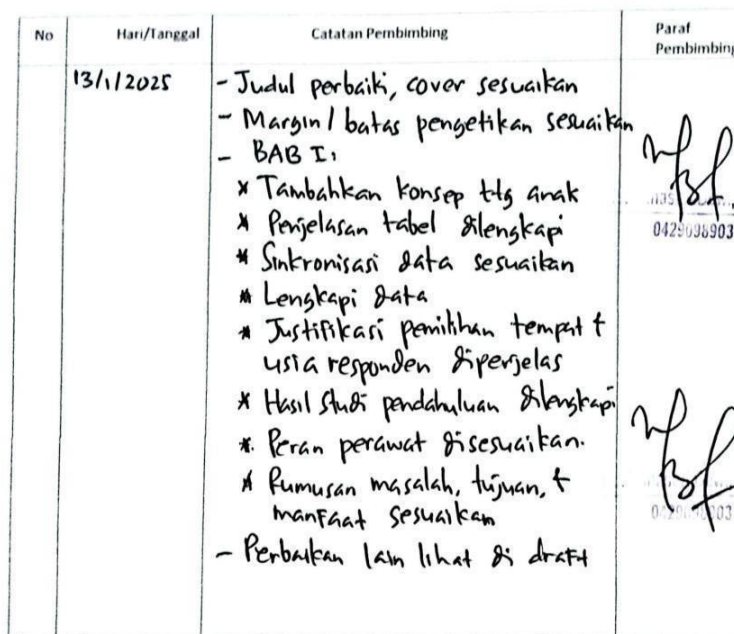 No Hari/Tanggal Catatan Pembimbing Paraf Pembimbing
13/1/2025
- Judul perbaiki, cover sesuaikan
- Margin / batas pengetikan sesuaikan
- BAB I:
* Tambahkan konsep ttg anak
* Penjelasan tabel dilengkapi
* Sinkronisasi data sesuaikan
* Lengkapi data
* Justifikasi pemilihan tempat +
usia responden diperjelas
* Hasil studi pendahuluan dilengkapi
* Peran perawat disesuaikan.
* Rumusan masalah, tujuan, +
manfaat sesuaikan
- Perbaikan lain lihat di draft